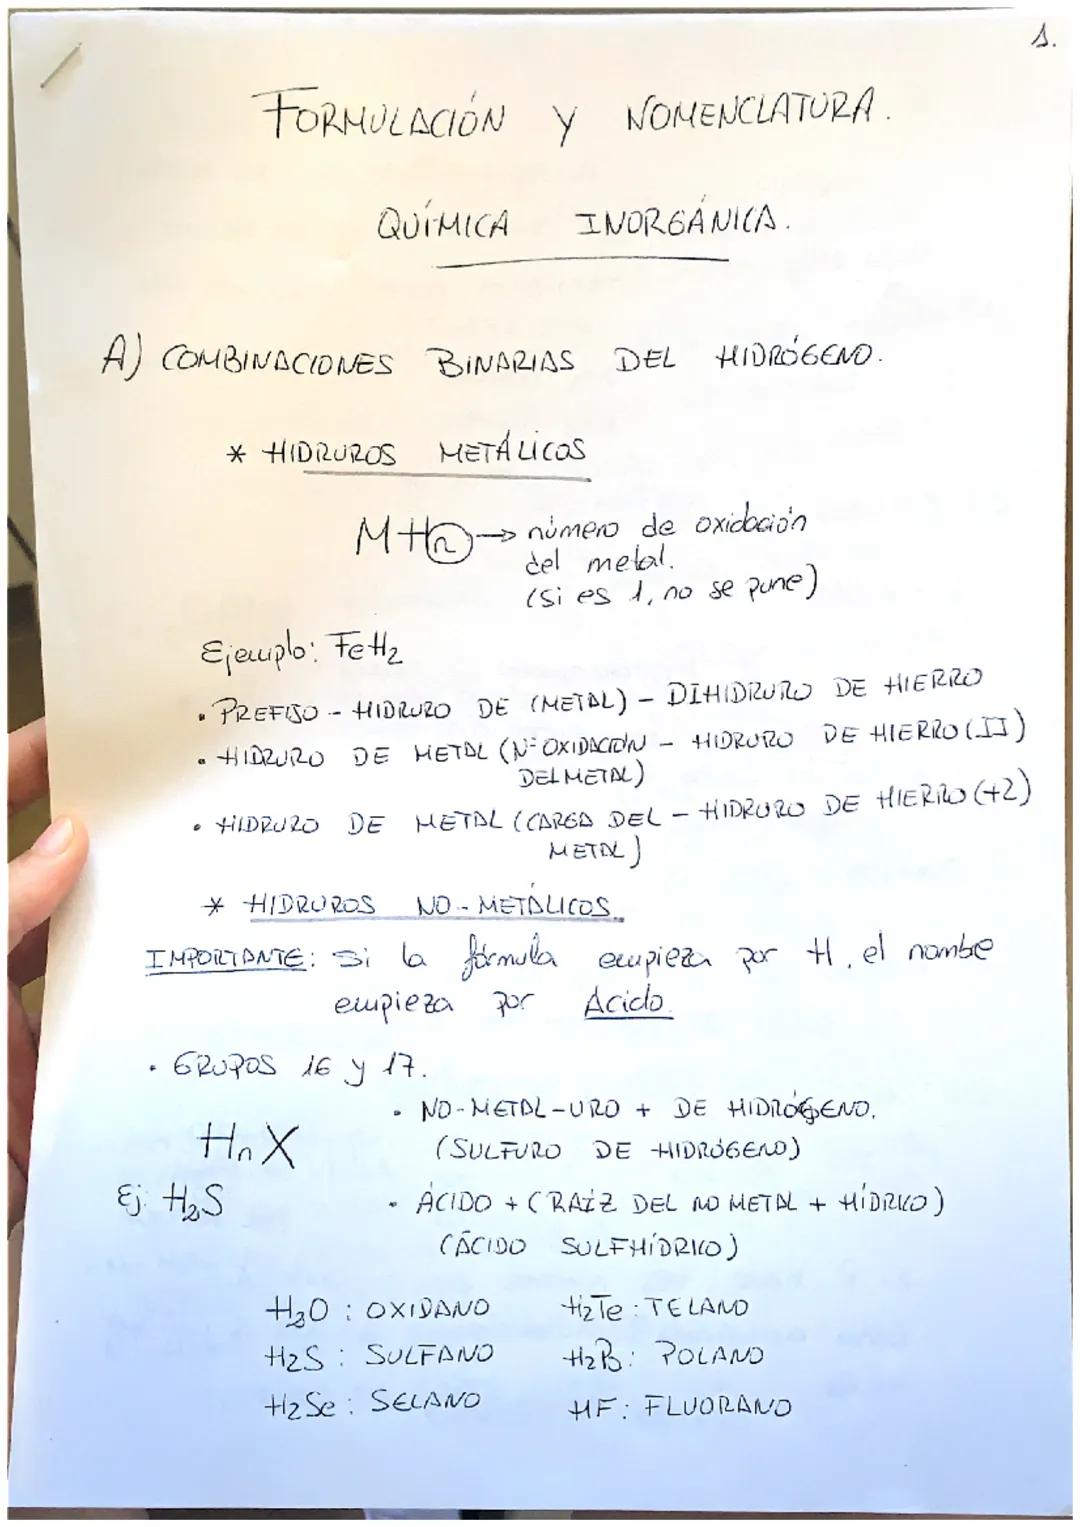 1.
FORMULACIÓN Y NOMENCLATURA.
QUÍMICA INORGÁNICA.
A) COMBINACIONES BINARIAS DEL HIDRÓGENO.
* HIDRUROS METÁLICOS
MHn → número de oxidación
del metal.
(si es 1, no se pone)
Ejemplo: FeH2
• PREFIJO - HIDRURO DE (METAL) - DIHIDRURO DE HIERRO
• HIDRURO DE METAL (Nº OXIDACIÓN - HIDRURO DE HIERRO (II)
DEL METAL)
• HIDRURO DE METAL (CARGA DEL - HIDRURO DE HIERRO (+2)
METAL)
* HIDRUROS NO-METÁLICOS.
IMPORTANTE: Si la fórmula empieza por H, el nombre
empieza por Ácido.
• GRUPOS 16 y 17.
• NO-METAL-URO + DE HIDRÓGENO.
HnX (SULFURO DE HIDRÓGENO)
Ej: H2S • ÁCIDO + (RAÍZ DEL NO METAL + HÍDRICO)
(ÁCIDO SULFHÍDRICO)
H2O : OXIDANO H2Te : TELANO
H2S : SULFANO H2Po : POLANO
H2Se : SELANO HF : FLUORANO